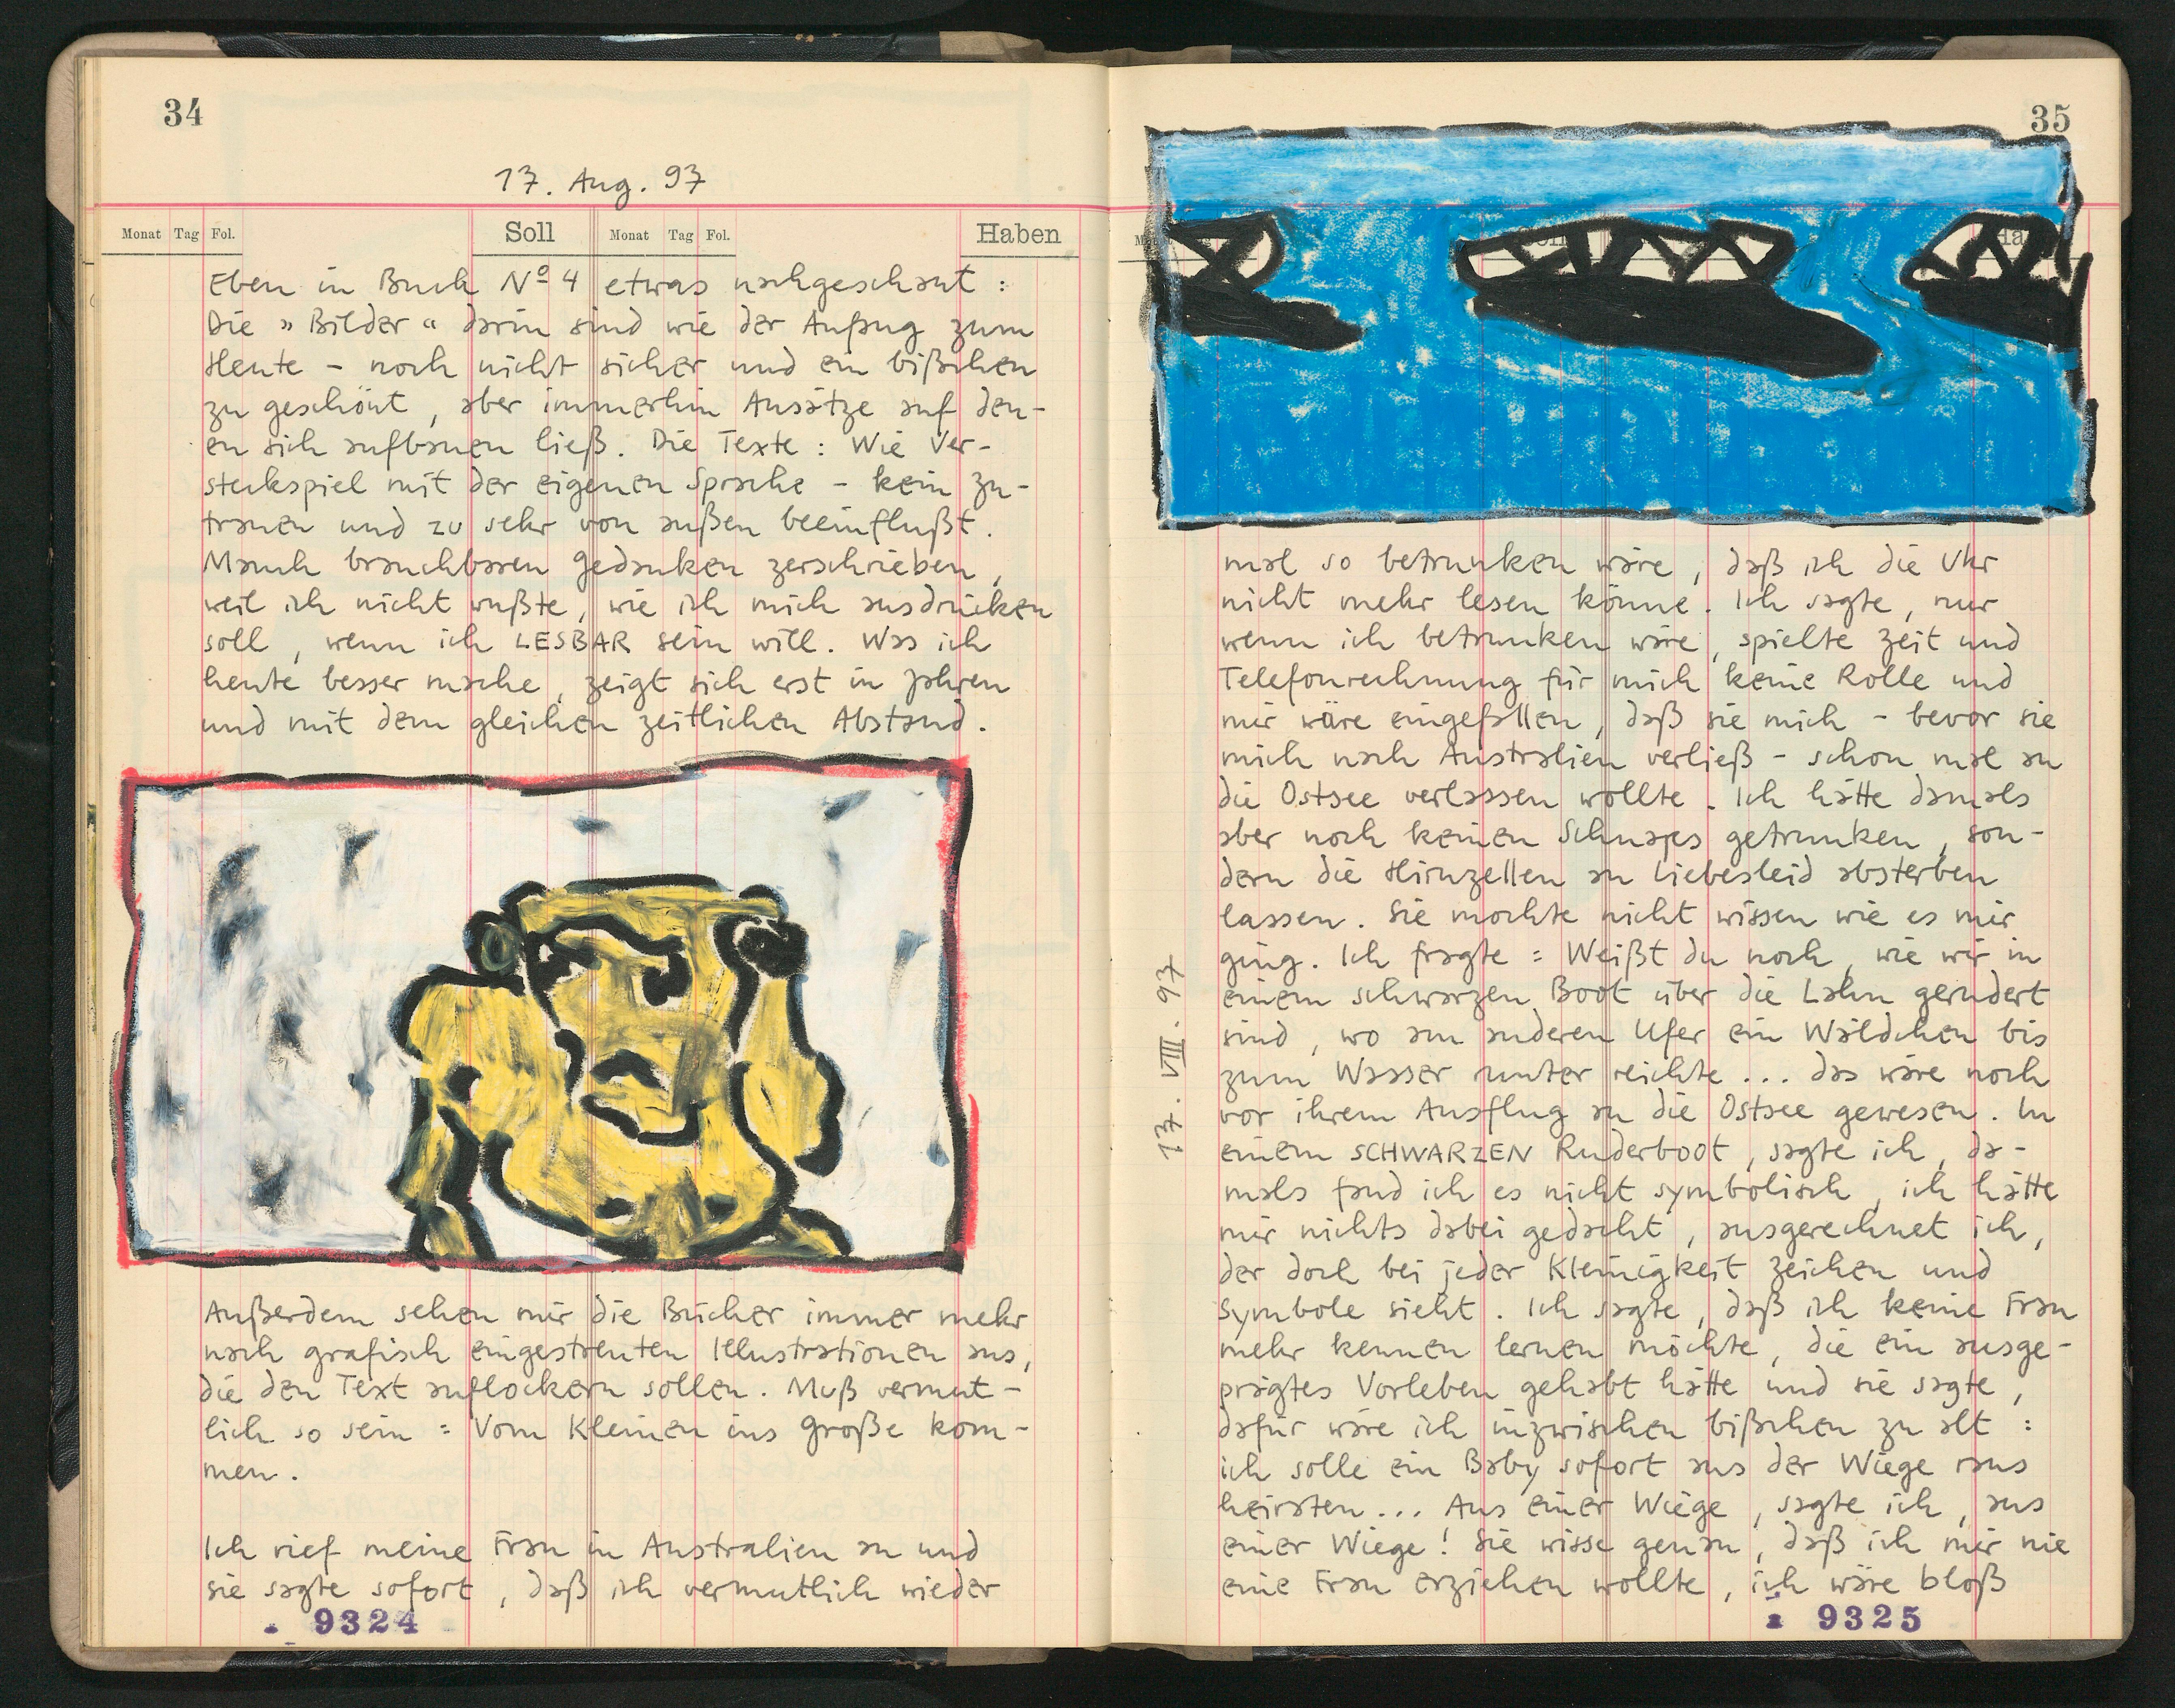 34
17. Aug. 97
Monat Tag Fol. Soll Monat Tag Fol. Haben
Eben in Buch Nº 4 etwas nachgeschaut :
Die » Bilder « darin sind wie der Anfang zum
Heute - noch nicht sicher und ein bißchen
zu geschönt , aber immerhin Ansätze auf den-
en sich aufbauen ließ. Die Texte : Wie Ver-
steckspiel mit der eigenen Sprache - kein zu-
trauen und zu sehr von außen beeinflußt.
Manch brauchbaren Gedanken zerschrieben,
weil ich nicht wußte, wie ich mich ausdrücken
soll , wenn ich LESBAR sein will. Was ich
heute besser mache, zeigt sich erst in Jahren
und mit dem gleichen zeitlichen Abstand.
Außerdem sehen mir die Bücher immer mehr
nach grafisch eingestreuten Illustrationen aus,
die den Text auflockern sollen. Muß vermut-
lich so sein : Vom Kleinen ins Große kom-
men.
Ich rief meine Frau in Australien an und
sie sagte sofort , daß ich vermutlich wieder
9324
35
mal so betrunken wäre , daß ich die Uhr
nicht mehr lesen könne. Ich sagte, nur
wenn ich betrunken wäre, spielte Zeit und
Telefonrechnung für mich keine Rolle und
mir wäre eingefallen, daß sie mich - bevor sie
mich nach Australien verließ - schon mal an
die Ostsee verlassen wollte. Ich hätte damals
aber noch keinen Schnaps getrunken, son-
dern die Hirnzellen an Liebesleid absterben
lassen. Sie mochte nicht wissen wie es mir
ging. Ich fragte : Weißt du noch, wie wir in
einem schwarzen Boot über die Lahn gerudert
sind , wo am anderen Ufer ein Wäldchen bis
zum Wasser runter reichte ... das wäre noch
vor ihrem Ausflug an die Ostsee gewesen. In
einem SCHWARZEN Ruderboot, sagte ich, da-
mals fand ich es nicht symbolisch, ich hätte
mir nichts dabei gedacht, ausgerechnet ich,
der doch bei jeder Kleinigkeit Zeichen und
Symbole sieht. Ich sagte, daß ich keine Frau
mehr kennen lernen möchte, die ein ausge-
prägtes Vorleben gehabt hätte und sie sagte,
dafür wäre ich inzwischen bißchen zu alt :
ich solle ein Baby sofort aus der Wiege raus
heiraten... Aus einer Wiege, sagte ich, aus
einer Wiege! Sie wisse genau, daß ich mir nie
eine Frau erziehen wollte, ich wäre bloß
17. VIII. 97
9325